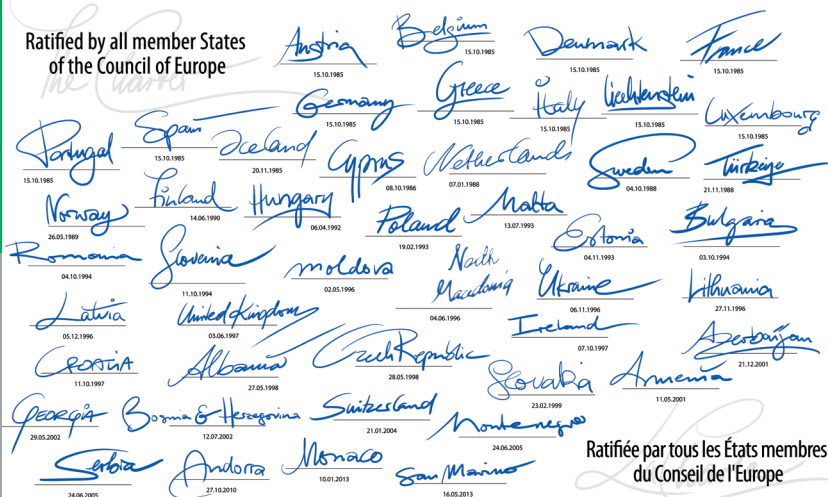 The Charter
Ratified by all member States
of the Council of Europe
Austria
15.10.1985
Belgium
15.10.1985
Denmark
15.10.1985
France
15.10.1985
Germany
15.10.1985
Greece
15.10.1985
Italy
15.10.1985
Liechtenstein
15.10.1985
Luxembourg
15.10.1985
Portugal
15.10.1985
Spain
15.10.1985
Iceland
20.11.1985
Cyprus
08.10.1986
Netherlands
07.01.1988
Sweden
04.10.1988
Türkiye
21.11.1988
Norway
26.05.1989
Finland
14.06.1990
Hungary
06.04.1992
Poland
19.02.1993
Malta
13.07.1993
Estonia
04.11.1993
Bulgaria
03.10.1994
Romania
04.10.1994
Slovenia
11.10.1994
moldova
02.05.1996
North
Macedonia
04.06.1996
Ukraine
06.11.1996
Lithuania
27.11.1996
Latvia
05.12.1996
United Kingdom
03.06.1997
Ireland
07.10.1997
Azerbaijan
21.12.2001
CROATIA
11.10.1997
Albania
27.05.1998
Czech Republic
28.05.1998
Slovakia
23.02.1999
Armenia
11.05.2001
GEORGIA
29.05.2002
Bosnia & Herzegovina
12.07.2002
Switzerland
21.01.2004
Montenegro
24.06.2005
Serbia
24.06.2005
Andorra
27.10.2010
Monaco
10.01.2013
San Marino
16.05.2013
Ratifiée par tous les États membres
du Conseil de l'Europe